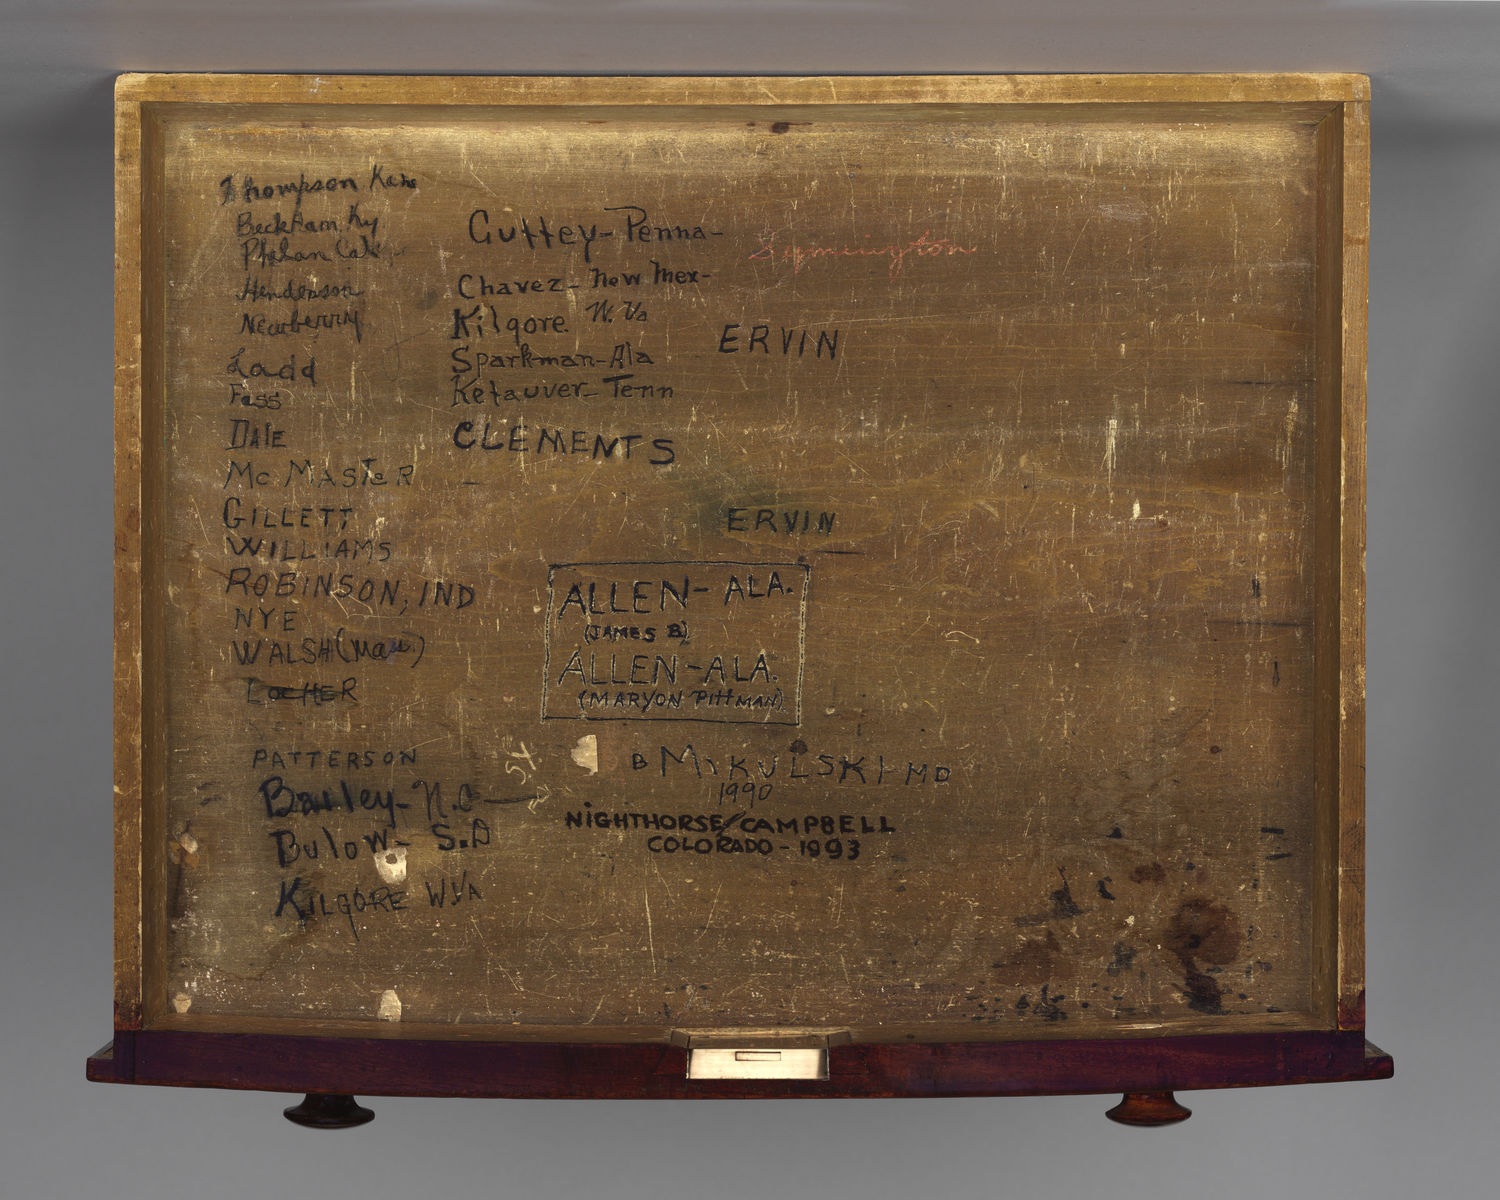 Thompson Kans
Beckham, Ky
Phelan Cal
Henderson
Newberry
Ladd
Fess
DALE
McMASTER
GILLETT
WILLIAMS
ROBINSON, IND
NYE
WALSH (Mass.)
LOCHER
PATTERSON
Bailey- N.C
Bulow- S.D
KILGORE W.VA
Guffey- Penna-
Chavez- New Mex-
Kilgore. W. Va
Sparkman-Ala
Kefauver- Tenn
CLEMENTS
Symington
ERVIN
ERVIN
ALLEN- ALA.
(JAMES B)
ALLEN-ALA.
(MARYON PITTMAN)
B MIKULSKI-MD
1990
NIGHTHORSE/CAMPBELL
COLORADO-1993